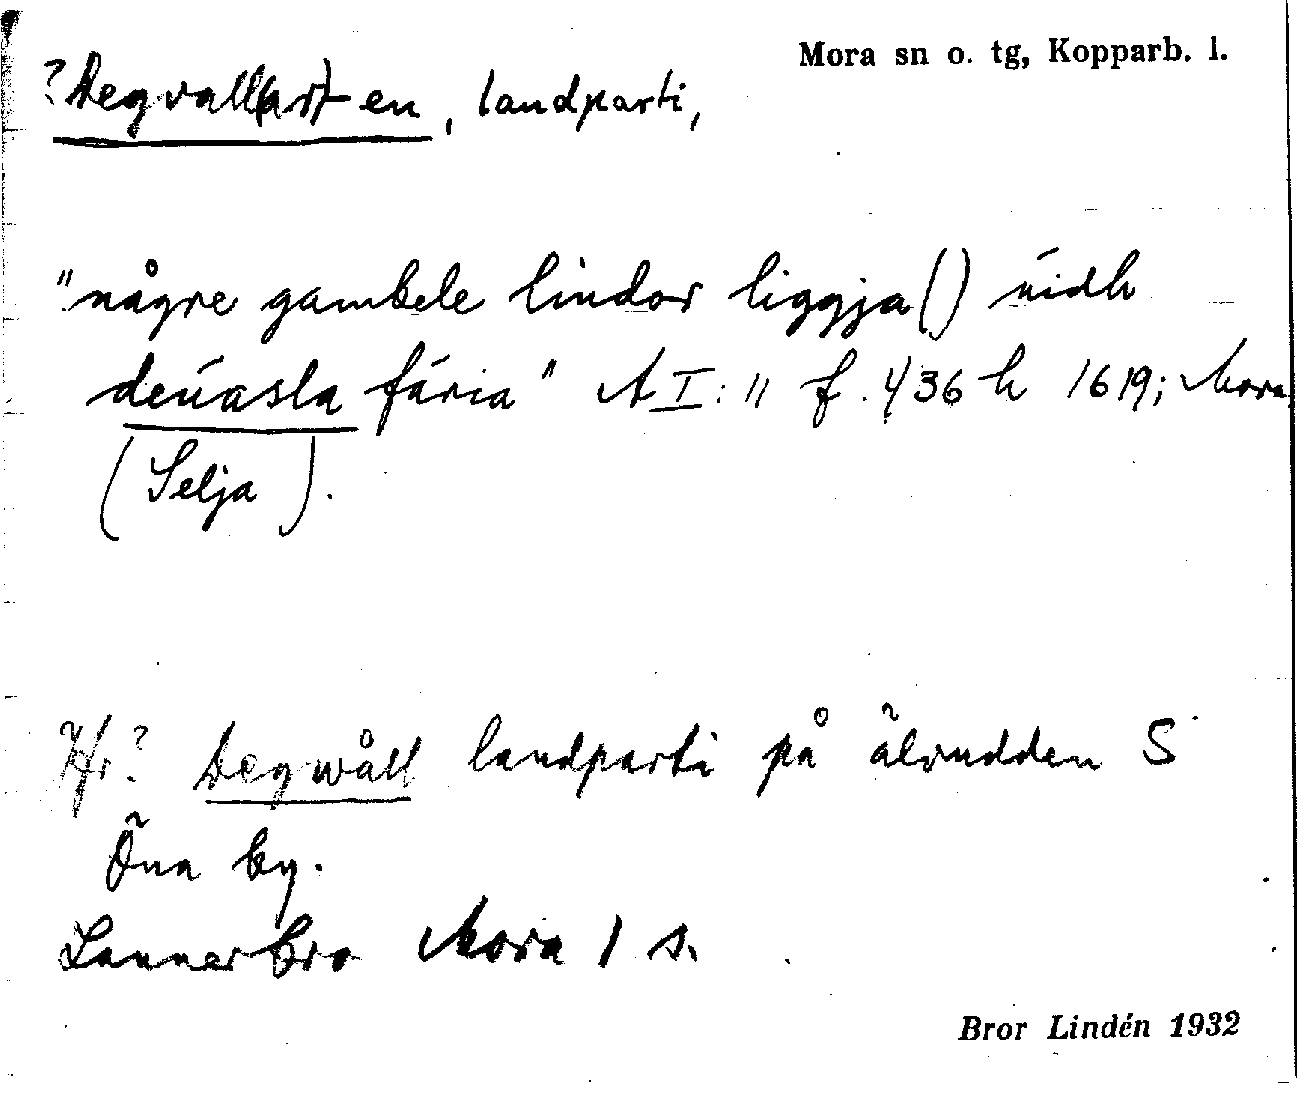 Mora sn o. tg, Kopparb. l.
?Degvall(ar)-en, landparti,
"någre gambele lindor liggja() uidh
deuasla färia" A I: 11 f. 436 h 1619; Mora
(Selja).
Jfr? Degwåll landparti på älvudden S
Öna by.
Lannerbro Mora 1 s.
Bror Lindén 1932